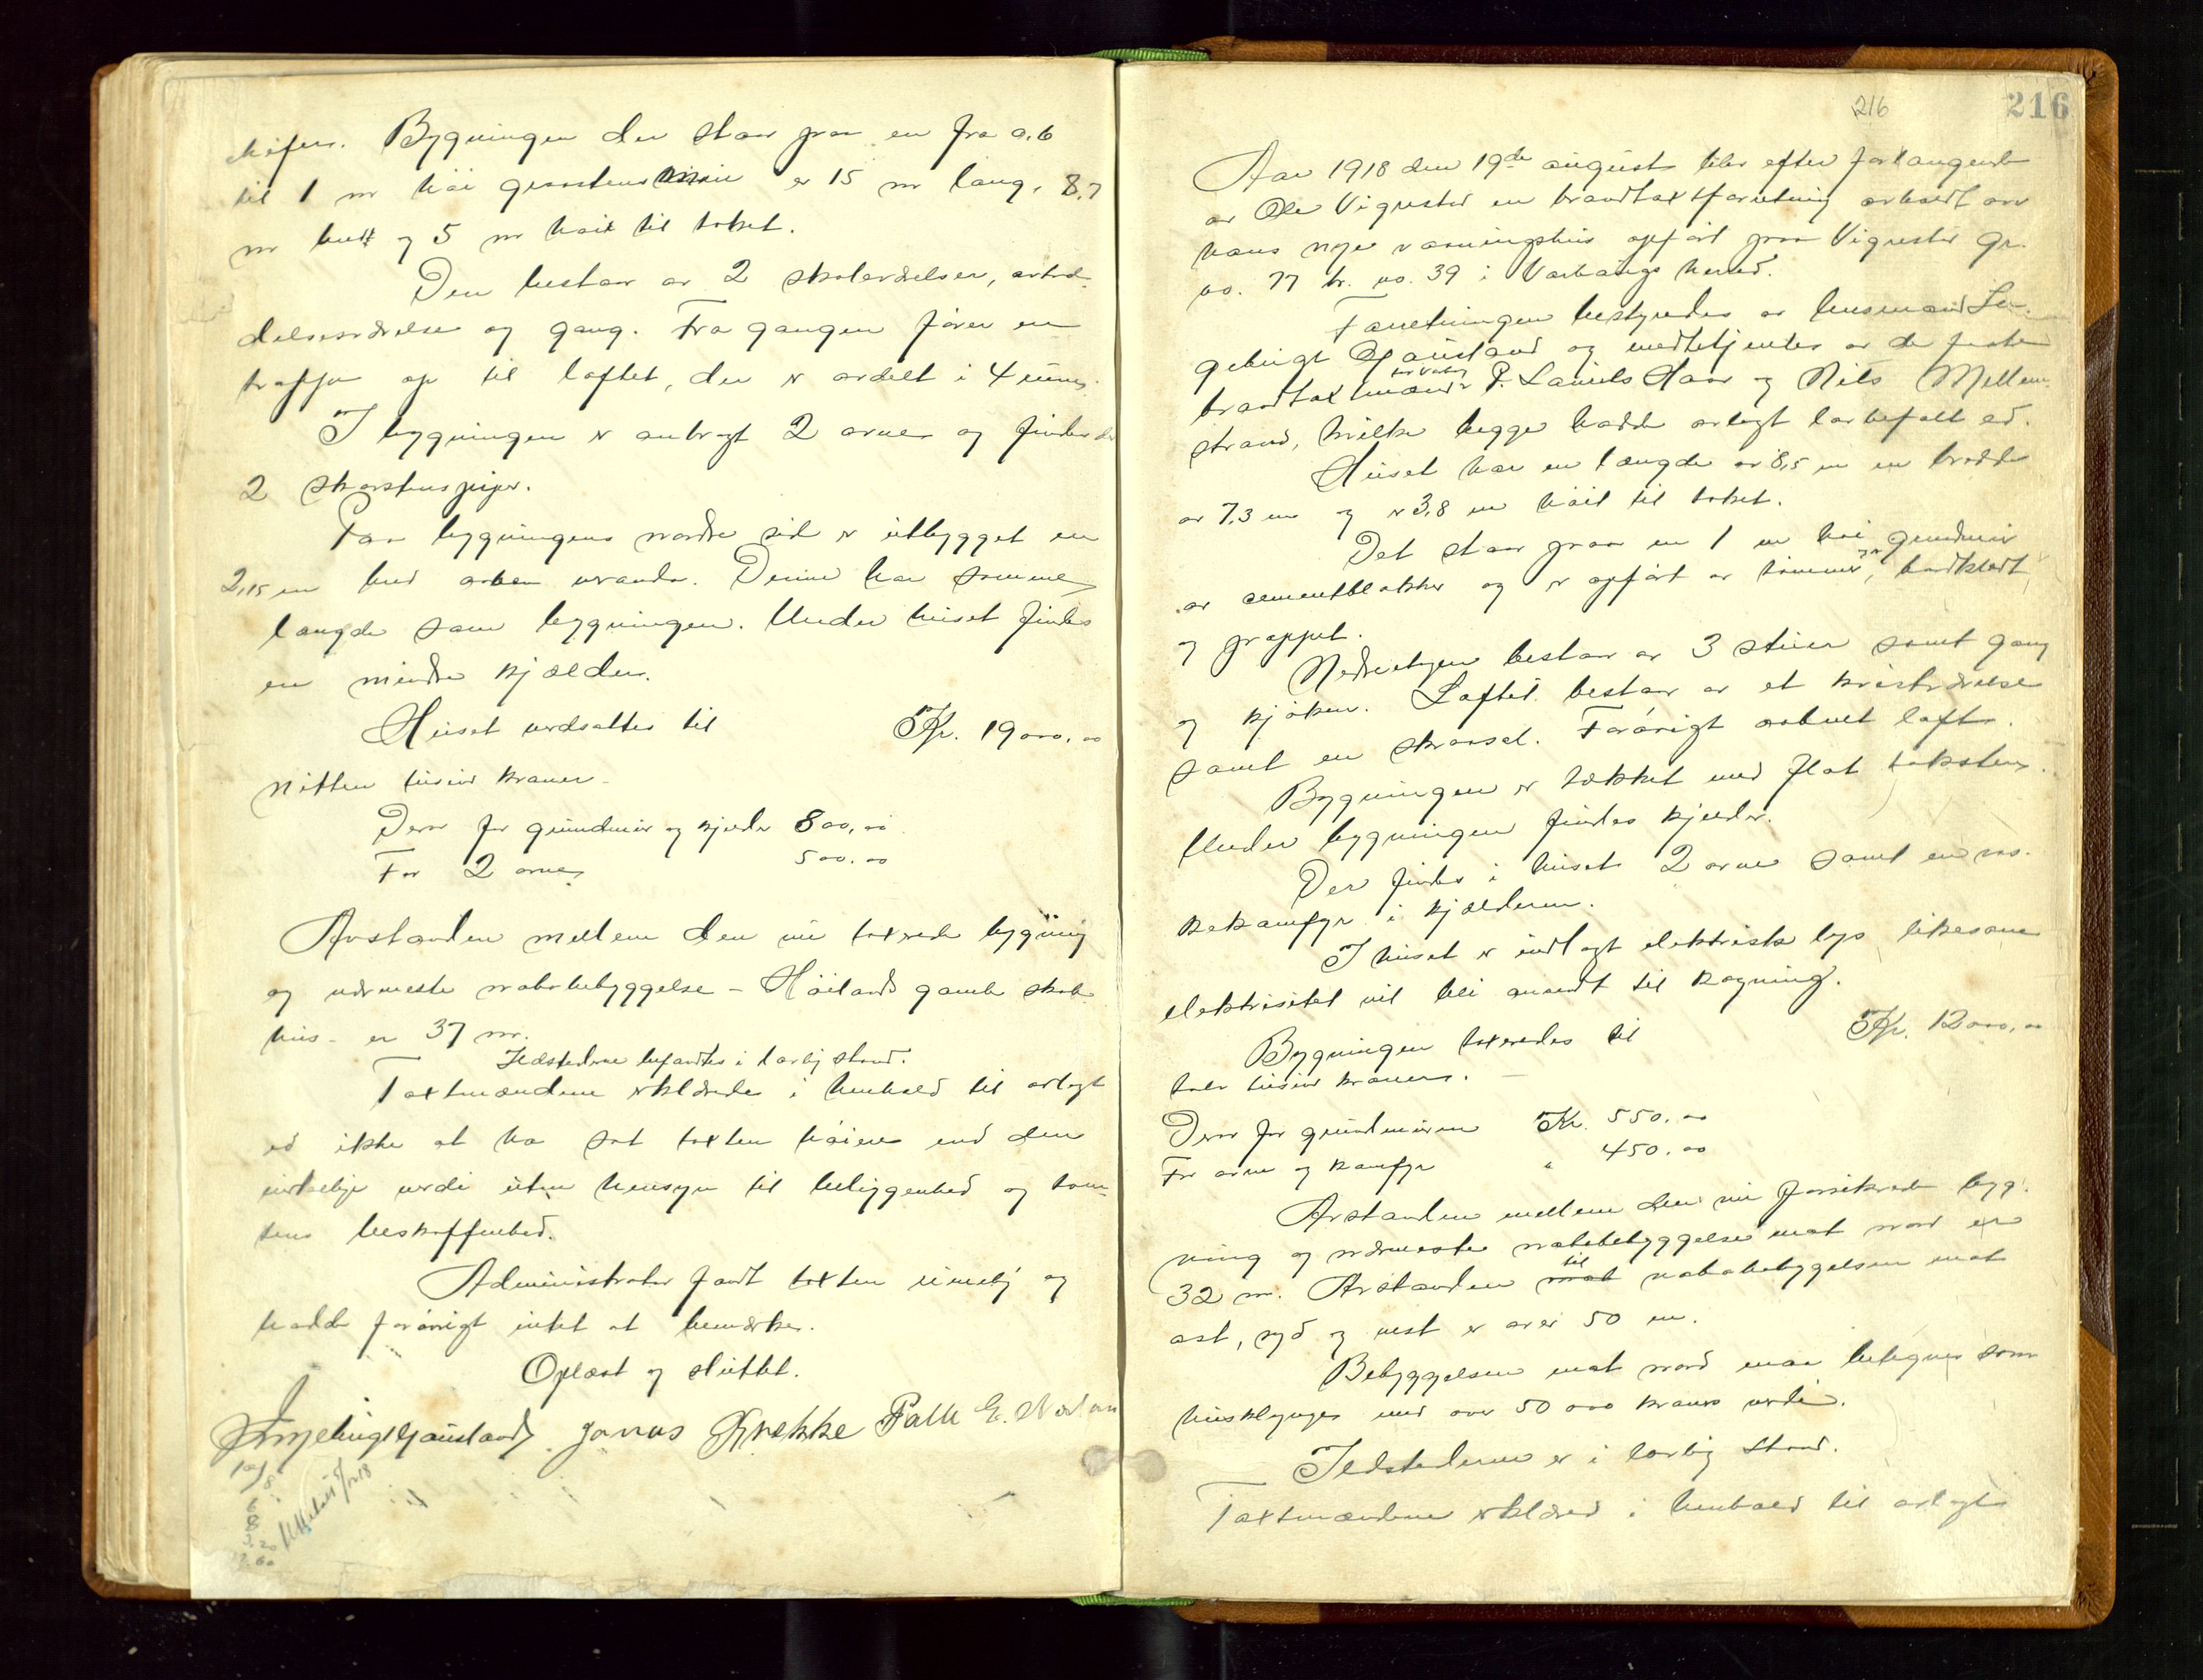 skifer. Bygningen der staar paa en fra 0,6
til 1 m høi graastensmur er 15 m lang, 8,7
m bred og 5 m høit til taket.
Den bestaar av 2 skoleværelser, arbei-
delsesværelse og gang. Fra gangen fører en
trappe op til loftet, der er avdelt i 4 rum.
I bygningen er anbragt 2 ovner og findes der
2 skorstenspiper.
Paa bygningens nordre side er utbygget en
2,15 m bred aapen veranda. Denne har samme
længde som bygningen. Under huset findes
en mindre kjælder.
Huset verdsattes til Kr. 19000,00
nitten tusind kroner
Derav for grundmur og kjælder 800,00
For 2 ovner 500.00
Avstanden mellem den nu taxerede bygning
og nærmeste nabobebyggelse - Høilands gamle skole-
hus - er 37 m.
Ildstederne befandtes i lovlig stand.
Taxtmændene erklærede i henhold til avlagt
ed ikke at ha sat taxten høiere end den
virkelige verdi uten hensyn til beliggenhed og tom-
tens beskaffenhed.
Administrator fandt taxten rimelig og
hadde forøvrigt intet at bemærke.
Oplæst og sluttet.
Ingebrigt Gausland Jonas Kyrkke Falk E.
216
216
Aar 1918 den 19de august blev efter forlangende
av Ole Vigrestad en brandtaxtforretning avholdt over
hans nye vaaningshus opført paa Vigrestad gr.
no. 77 br. no. 39 i Varhaugs herred.
Forretningen bestyredes av lensmand In-
gebrigt Gausland og medbetjentes av de faste
brandtaxtmænd P. Laniels Haar og Nils Mellem-
strand, hvilke begge hadde avlagt lovbefalt ed.
Huset har en længde av 8,5 m en bredde
av 7,3 m og er 3,8 m høit til taket.
Det staar paa en 1 m høi grundmur
av cementblokker og er opført av tømmer, bordklædt
og pappet.
Nedreetagen bestaar av 3 stuer samt gang
og kjøken. Loftet bestaar av et kvistværelse
samt en skraasal. Forøvrigt aapent loft.
Bygningen er tækket med flat taksten.
Under bygningen findes kjælder.
Der findes i huset 2 ovne samt en vas-
kekamfyr i kjælderen.
I huset er indlagt elektrisk lys likesom
elektrisitet vil bli anvendt til kogning.
Bygningen taxeredes til Kr. 12000,00
tolv tusind kroner.
Derav for grundmuren Kr. 550.00
For ovne og kamfyr " 450.00
Avstanden mellem den nu forsikrede byg-
ning og nærmeste nabobebyggelse mot nord er
32 m. Avstanden til nabobebyggelsen mot
øst, syd og vest er over 50 m.
Bebyggelsen mot nord maa betegnes som
husklynger med over 50 000 kroners verdi.
Ildstederne er i lovlig stand.
Taxtmændene erklæred i henhold til avlagt